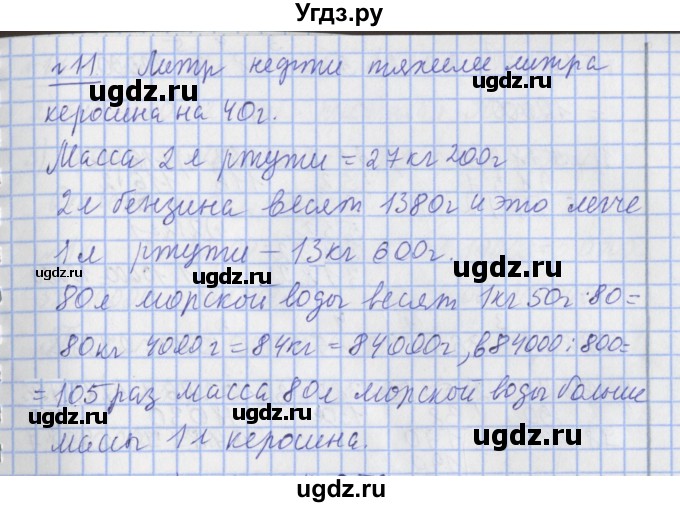 Угдз.ру
№11 Литр нефти тяжелее литра
ugdz.ru ugdz.ru
керосина на 40г.
ugdz.ru
Масса 2 л ртути = 27 кг 200г
2л бензина весят 1380г и это легче
1 л ртути – 13кг 600г.
ugdz.ru ugdz.ru ugdz.ru
80л морской воды весят 1кг 50г · 80 =
80кг 4000г = 84кг = 84000г, в 84000 : 800 =
ugdz.ru ugdz.ru
= 105 раз масса 80л морской воды больше
массы 1 л керосина.
ugdz.ru ugdz.ru
ugdz.ru